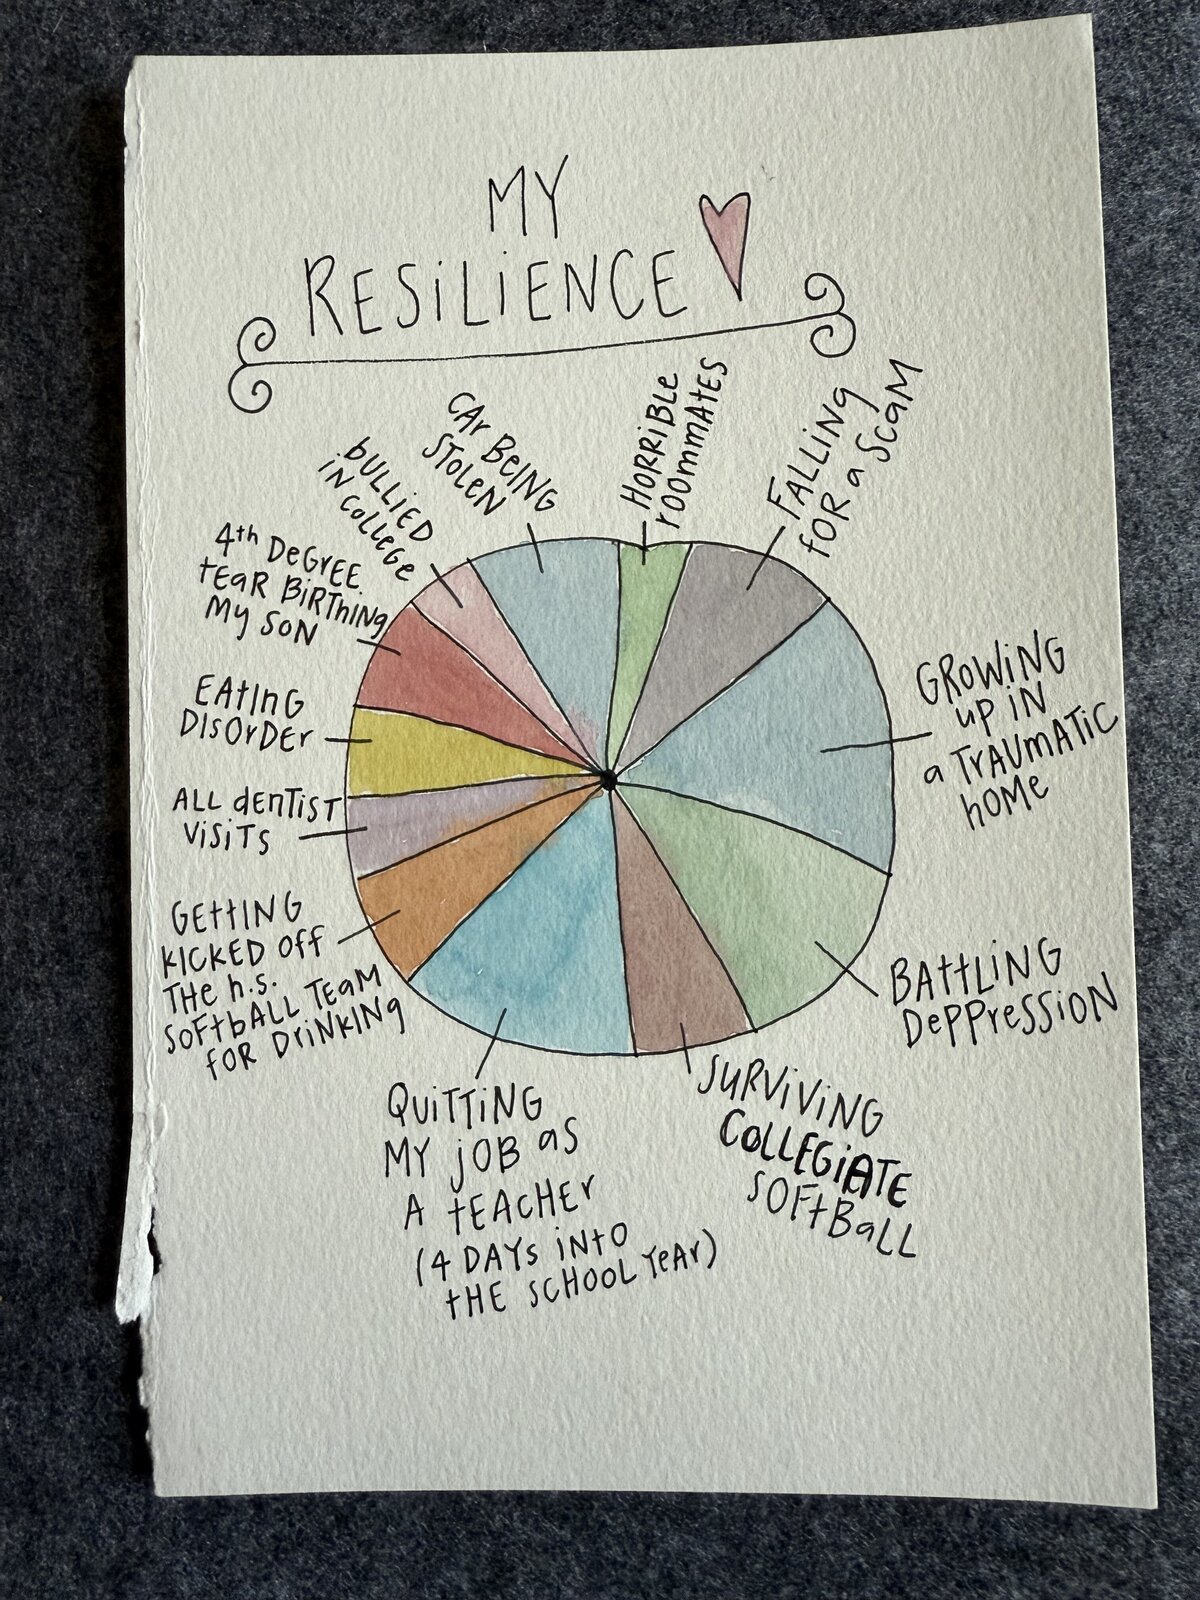 MY
RESILIENCE
HORRIBLE
ROOMMATES
FALLING
FOR a ScaM
GROWING
UP IN
a TRAUMATIC
HOME
BATTLING
DEPPRESSION
SURVIVING
COLLEGIATE
SOFTBALL
QUITTING
MY JOB as
A TEACHER
(4 DAYS INTO
THE SCHOOL YEAR)
GETTING
KICKED OFF
THE h.s.
SOFTBALL TEAM
FOR DRINKING
ALL dENTIST
VISITS
EATING
DISORDER
4th DEGREE
TEAR BIRTHING
MY SON
bULLIED
IN COLLEGE
CAR BEING
STOLEN